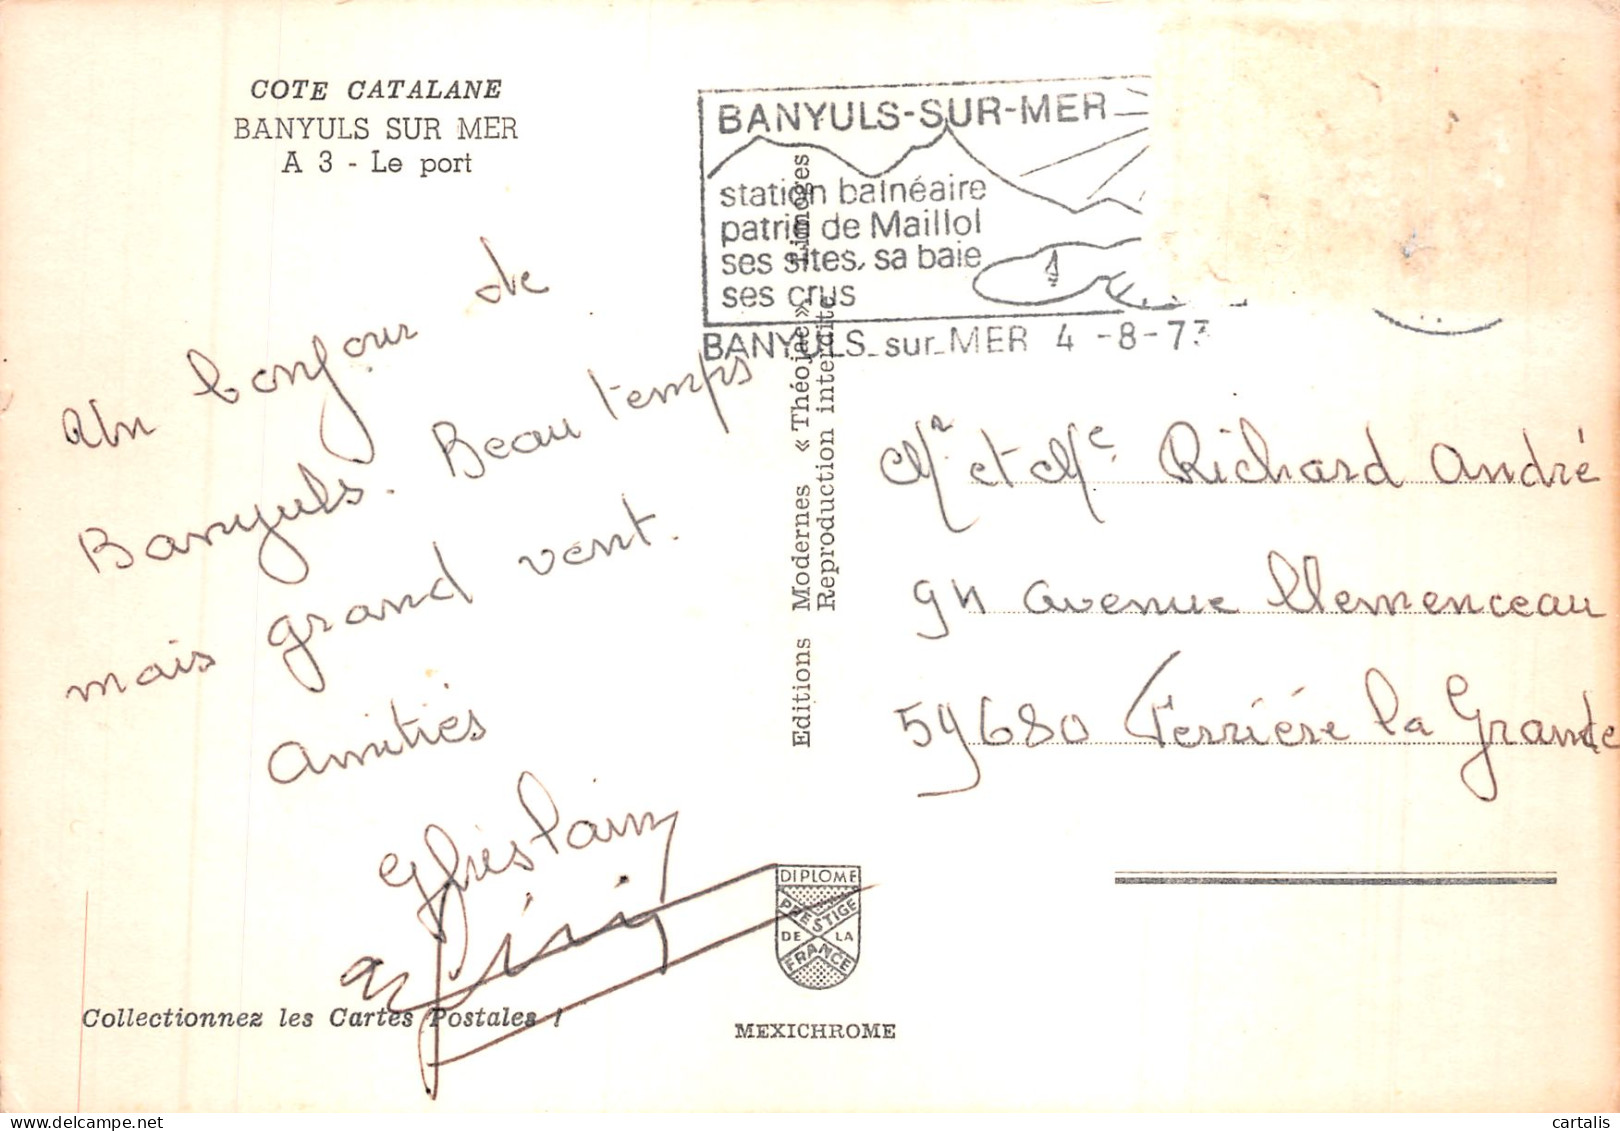 COTE CATALANE
BANYULS SUR MER
A 3 - Le port
BANYULS-SUR-MER
station balnéaire
patrie de Maillol
ses sites, sa baie
ses crus
BANYULS sur MER 4 -8-73
Un bonjour de
Banyuls. Beau temps
mais grand vent.
Amitiés
Ghislain
Editions Modernes « Théojac » Limoges
Reproduction interdite
Mr et Me Richard André
94 avenue Clemenceau
59680 Ferrière la Grande
DIPLOME
PRESTIGE
DE LA
FRANCE
MEXICHROME
Collectionnez les Cartes Postales !
cartalis